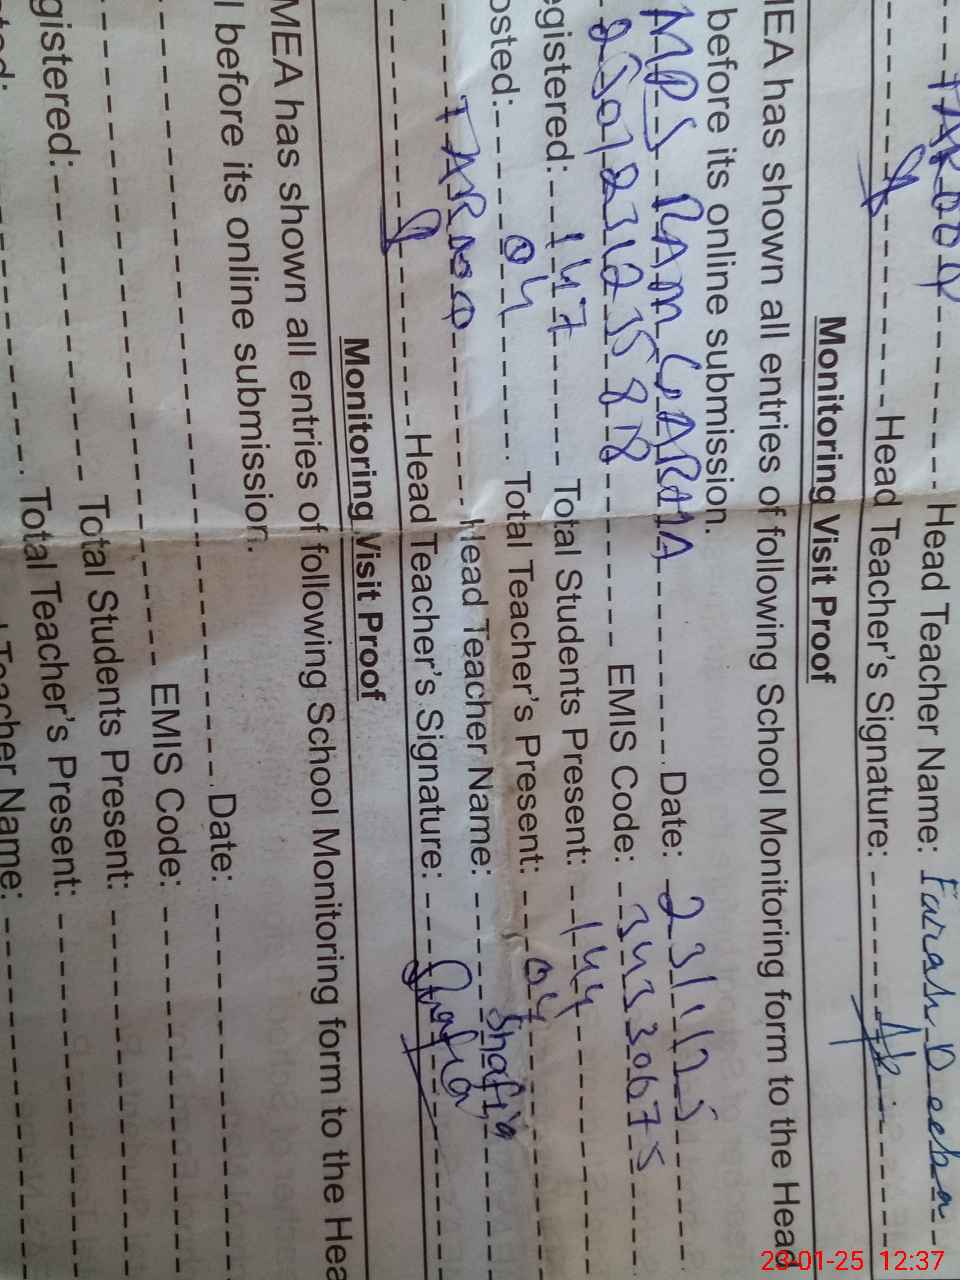 TAROOQ Head Teacher Name: Farah Deeba
Head Teacher's Signature:
Monitoring Visit Proof
MEA has shown all entries of following School Monitoring form to the Head
before its online submission.
MPS RAM GARHA Date: 23/1/25
EMIS Code: 34330675
egistered: 147 Total Students Present: 144
osted: 04 Total Teacher's Present: 04
Head Teacher Name: Shafia
Head Teacher's Signature: Shafia
Monitoring Visit Proof
MEA has shown all entries of following School Monitoring form to the Hea
l before its online submission.
Date:
EMIS Code:
gistered: Total Students Present:
Total Teacher's Present:
Teacher Name:
23-01-25 12:37